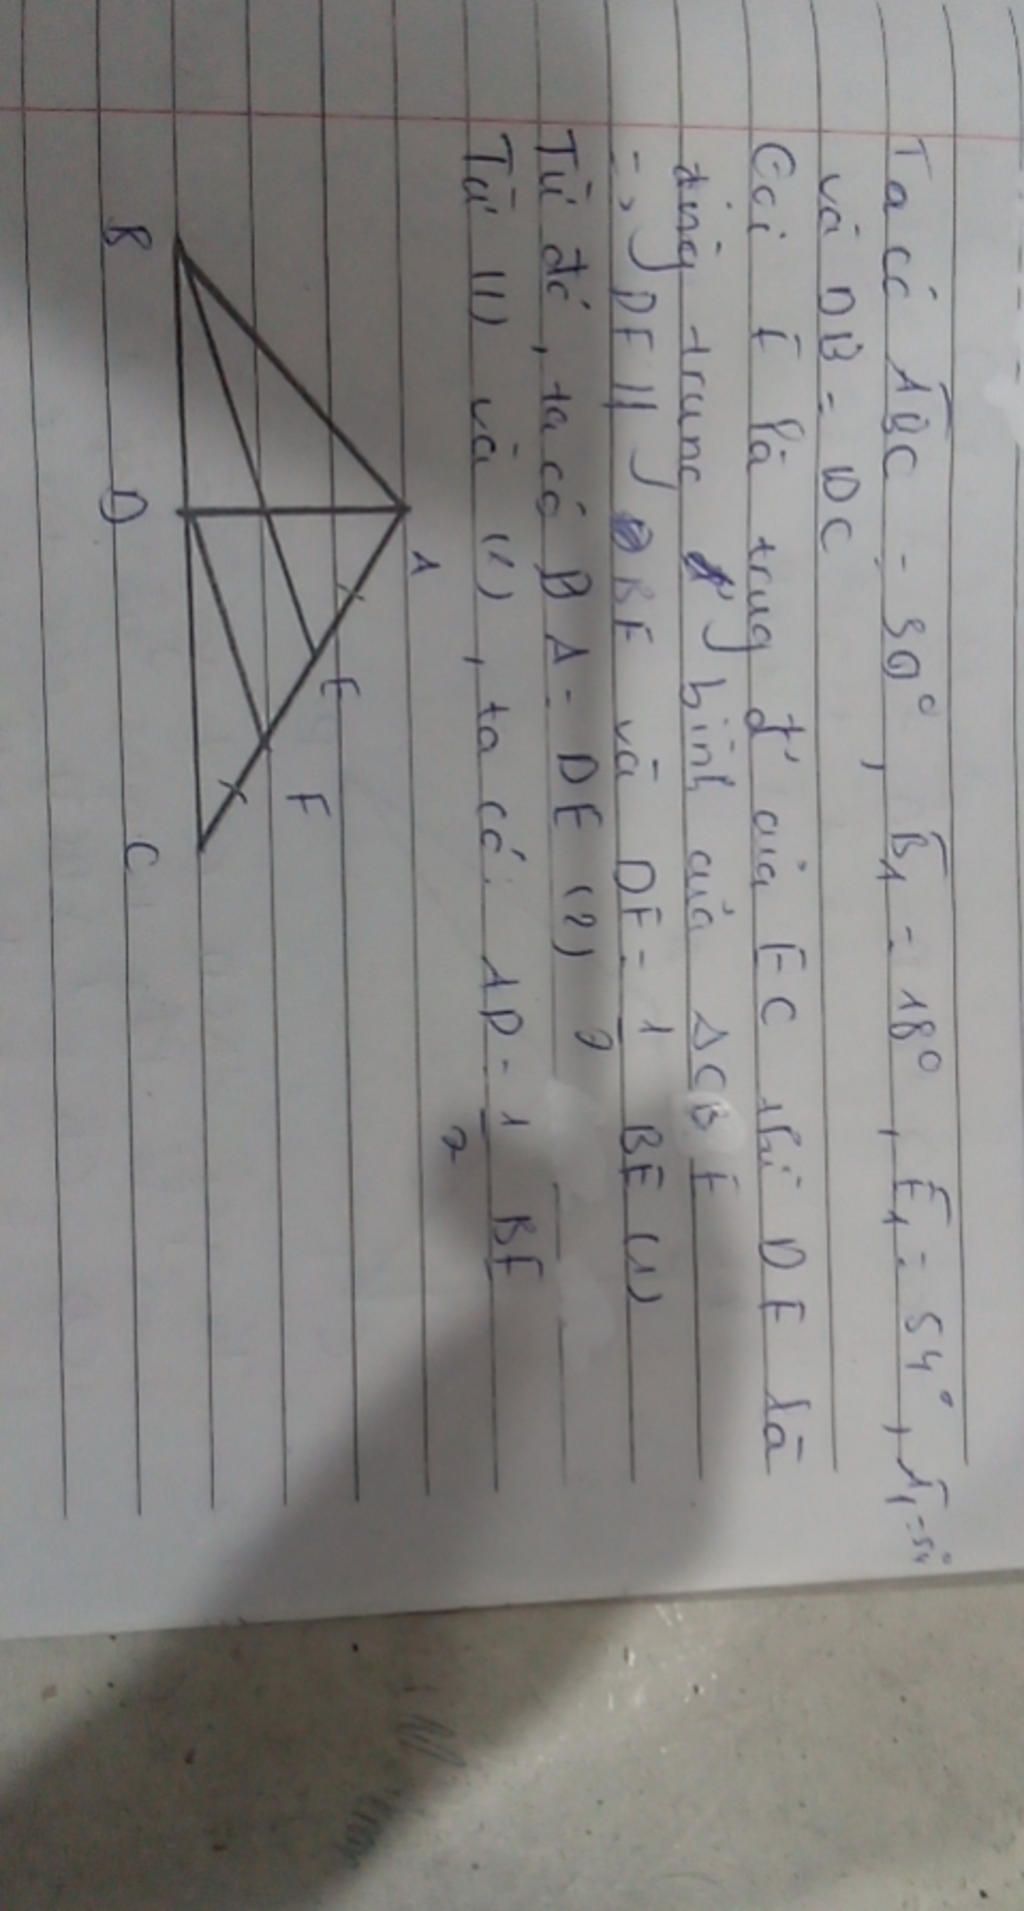 Ta có ABC = 90°, B1 = 18°, E1 = 54°, A1 = 54°
và DB = DC
Gọi F là trung đ' của EC thì DF là
đường trung bình của ΔCBE
=> DF // BE và DF = 1/2 BE (1)
Từ đó, ta có BA = DF (2)
Từ (1) và (2), ta có: AD = 1/2 BE
A
B
D
E
F
C